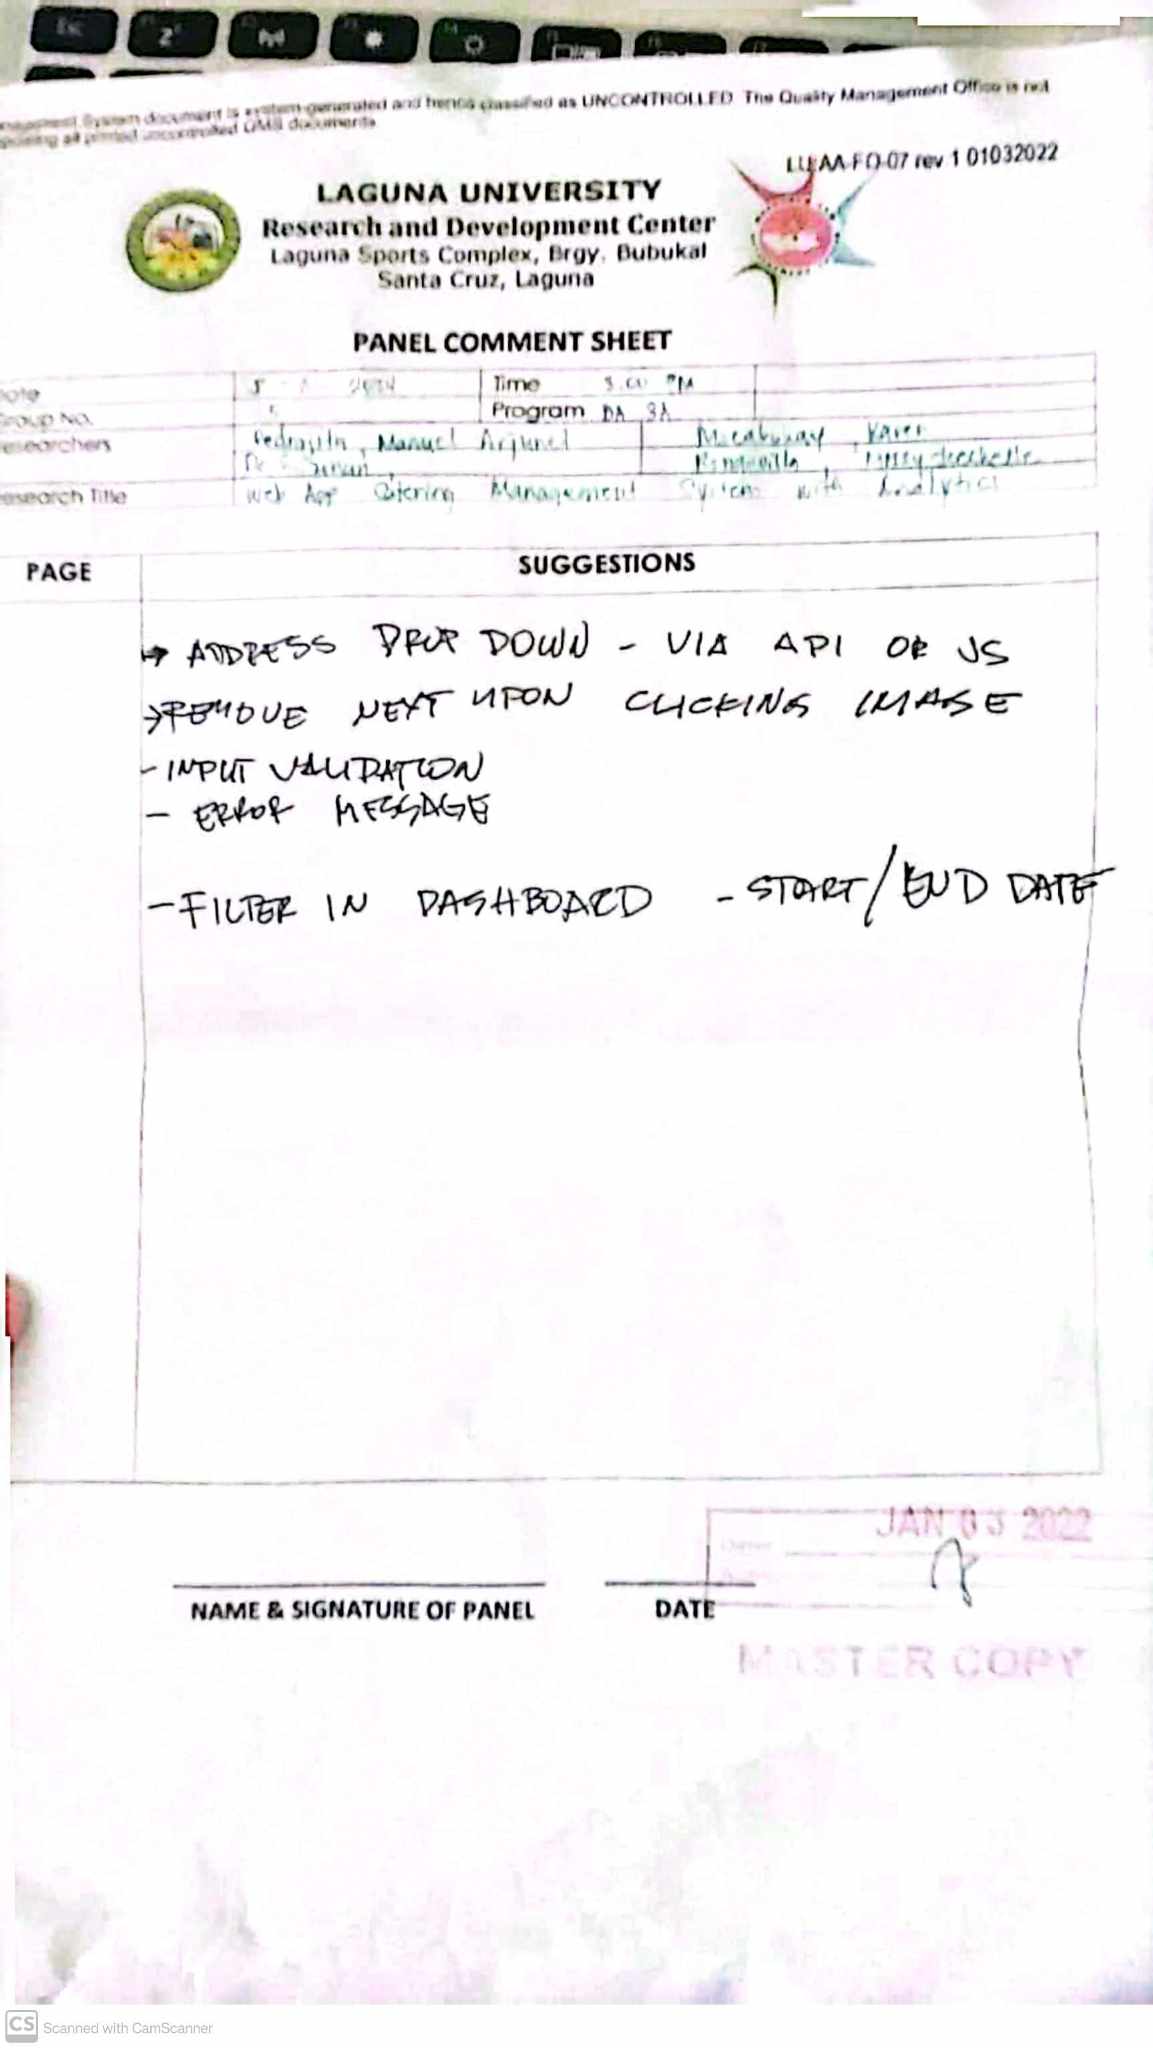 System document is system-generated and hence classified as UNCONTROLLED. The Quality Management Office is not
all printed uncontrolled QMS documents
LU-AA-FO-07 rev 1 01032022
LAGUNA UNIVERSITY
Research and Development Center
Laguna Sports Complex, Brgy. Bubukal
Santa Cruz, Laguna
PANEL COMMENT SHEET
Time PM
Group No. Program 3A
esearchers Manuel Karen
esearch Title Web App Catering Management System with Analytics
PAGE SUGGESTIONS
→ ADDRESS DROP DOWN - VIA API OR JS
→ REMOVE NEXT UPON CLICKING IMAGE
- INPUT VALIDATION
- ERROR MESSAGE
- FILTER IN DASHBOARD - START/END DATE
JAN 03 2022
NAME & SIGNATURE OF PANEL DATE
MASTER COPY
CS Scanned with CamScanner